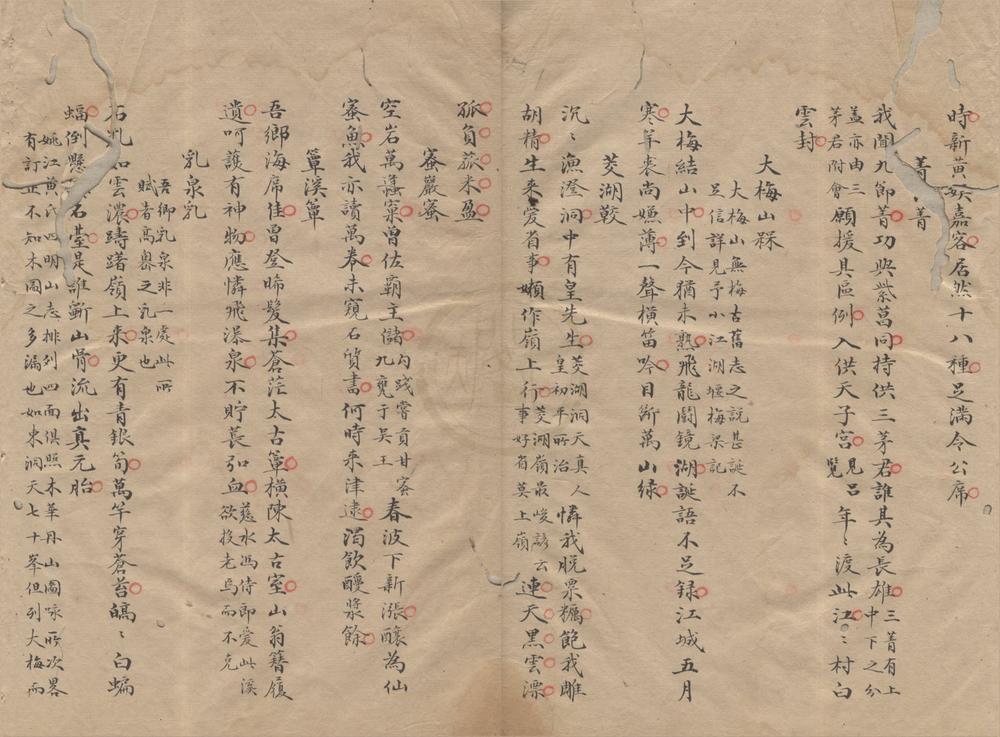 時新黃㜎嘉容居然十八種足滿令公席
菁菁
我聞九節菖功與紫萵同持供三茅君誰其為長雄三菁有上
中下之分
蓋亦由三
茅君附會願援具區例入供天子宮見呂
覽年〻渡此江江村白
雲封
大梅山槑
大梅山無梅古舊志之説甚誕不
足信詳見予小江湖堰梅梁記
大梅結山中到今猶未熟飛龍鬬鏡湖誕語不足録江城五月
寒羊裘尚嫌薄一聲橫笛吟目斷萬山綠
茭湖鞍
沉〻漁澄洞中有皇先生茭湖洞天真人
皇初平所治憐我脱粟糲飽我雕
胡精生來愛省事嬾作嶺上行茭湖嶺最峻諺云
事好省莫上嶺連天黑雲漂
孤負菰米盈
蜜巖蜜
空岩萬蠭窠曾佐霸王儲勾踐嘗貢甘蜜
九甕于吳王春波下新漲釀為仙
蜜魚我亦讀萬卷未窺石質書何時來津逮渴飲醴漿餘
簟溪簟
吾鄉海席佳曾登晞髮集蒼茫太古簟橫陳太古室山翁簪履
遺呵護有神物應憐飛瀑泉不貯萇弘血慈水馮侍郎愛此溪
欲投老焉而不克
乳泉乳
吾鄉乳泉非一處此所
賦者高嶴之乳泉也
石乳如雲濃躊躇嶺上來更有青銀筍萬竿穿蒼苔皜〻白蝙
蝠倒懸石臺是誰斸山骨流出真元胎
姚江黃氏四明山志排列四面俱照木華丹山圖咏所次畧
有訂正不知木圖之多漏也如東洞天七十峯但列大梅而